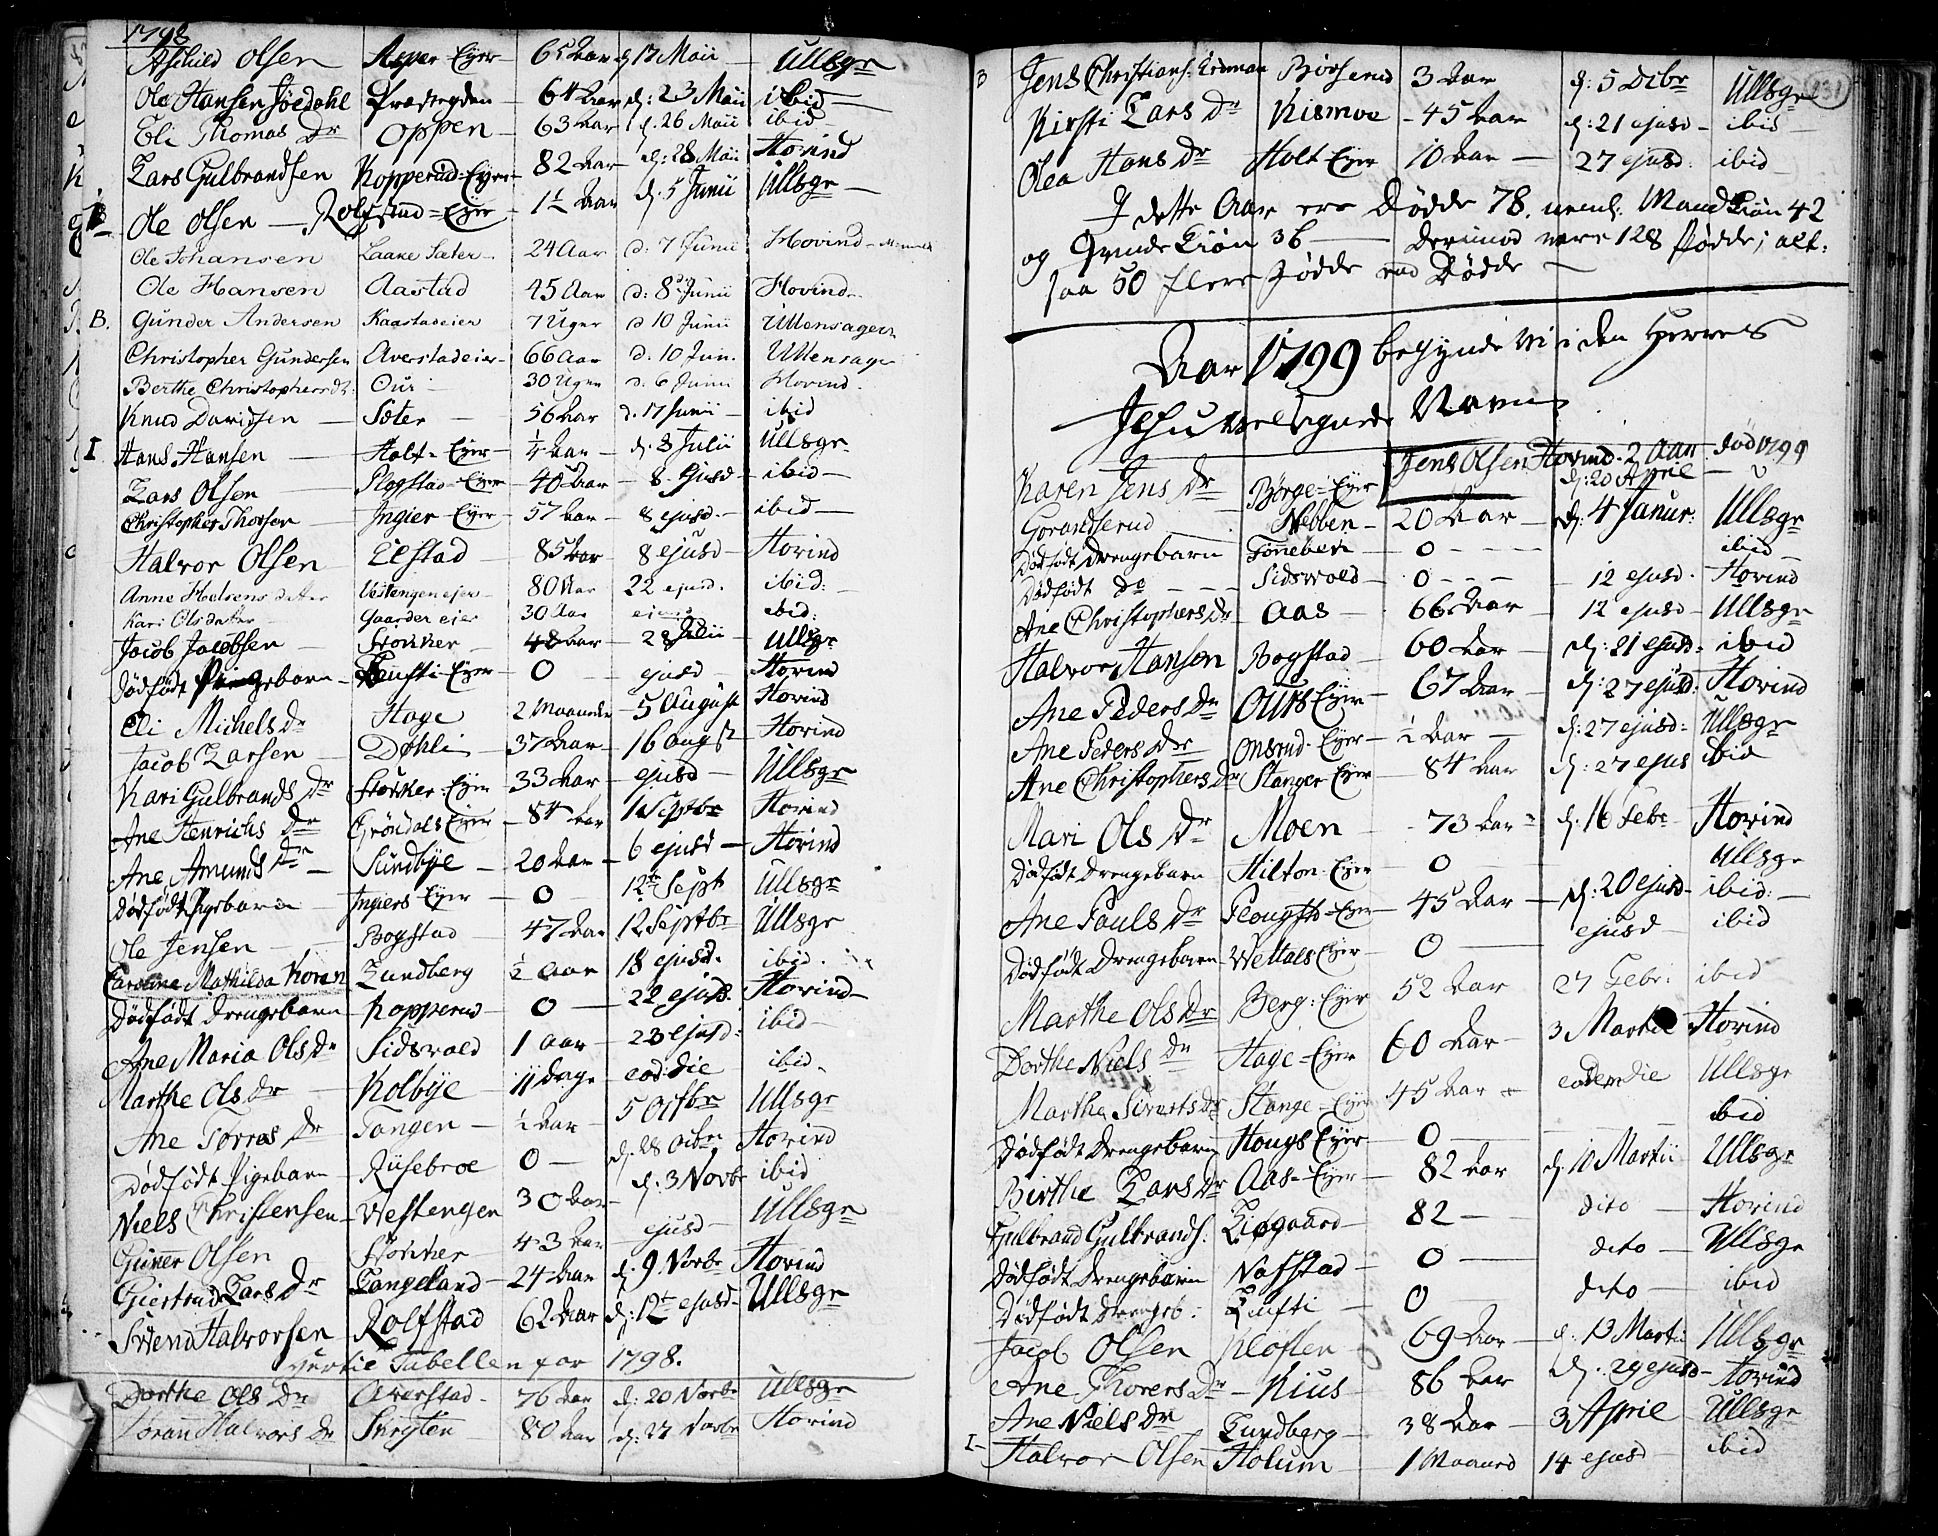 1798
Aschild Olsen Asper-Eyer 65 Aar d. 17 Maii Ullsgr
Ole Hansen Præstegden 64 Aar d: 23 Maii ibid
Eli Thomas Dr Oppen 63 Aar d. 26 Maii ibid
Lars Gulbrandsen Kopperud-Eyer 82 Aar d: 28 Maii Hovind
Ole Olsen Rolfstad-Eyer 1½ Aar d. 5 Junii Ullsgr
Ole Johansen Laake Sæter 24 Aar d: 7 Junii Hovind
Ole Hansen Aastad 45 Aar d: 8 Junii Hovind
B. Gunder Andersen Kaastadeier 7 Uger d 10 Junii Ullensager
Christopher Gundersen Averstadeier 66 Aar d. 10 Jun. Ullensager
Berthe Christophersdt: Our 30 Uger d. 6 Junii Hovind.
Knud Davidsen Soter 56 Aar d. 17 Junii ibid
I Hans Hansen Holt-Eyer ¼ Aar d. 3 Julii Ullsgr
Lars Olsen Plogstad-Eyer 40 Aar 8 Ejusd ibid
Christopher Thorsen Ingier-Eyer 57 Aar 8 ejusd. ibid
Halvor Olsen Lilstad 85 Aar 8 ejusd Hovind
Anne Helsens datter Vestengen ejer 80 Aar 22 ejusd. ibid.
Kari Olsdatter Gaarder eier 30 Aar ejusd ibid:
Jacob Jacobsen Stokker 48 Aar 28 Julii Ullsgr
Dødfødt Pigebarn Eyer 0 ejusd Hovind
Eli Michels Dr Hage 2 Maaneder 5 August Hovind
Jacob Larsen Døhli 37 Aar 16 Augst Hovind
Kari Gulbrands Dr Stokker-Eyer 33 Aar ejusd Ullsgr
Ane Henrichs Dr Grøndals Eyer 84 Aar 1 Septbr Hovind
Ane Amunds Dr Sundbye 20 Aar 6 ejusd Hovind
Dødfødt Pigebarn Ingiers-Eyer 0 12 Sept Ullsgr
Ole Jensen Bogstad 47 Aar 12 Septbr Ullsgr
Caroline Mathilda Koren Lundberg ½ Aar 18 ejusd. ibid.
Dødfødt Drengebarn Kopperud 0 22 ejusd. Hovind
Ane Maria Ols Dr Sidsvold 1 Aar 23 ejusd: ibid
Marthe Ols Dr Kolbye 11 Dage eod: die ibid
Ane Torres Dr Tangen ½ Aar 5 Octbr Ullsgr
Dødfødt Pigebarn Riisebroe 0 d. 28 Octbr Hovind
Niels Christensen Westengen 30 Aar d. 3 Novb ibid
Guner Olsen Stokker 43 Aar ejusd Ullsgr
Giertrud Lars Dr Langeland 24 Aar d. 9 Novbr Hovind
Svend Halvorsen Rolfstad 62 Aar d: 12t ejusd Ullsgr
Tabellen for 1798.
Dorthe Ols Dr Averstad 76 Aar d: 20 Novbr Ullsgr
Halvors Dr 80 Aar d: 27 Novbr Hovind
3 Jens Christians: Børserud 3 Aar d: 5 Dcbr Ullsgr
Kirsti Lars Dr Kismoe 45 Aar d: 21 ejusd ibid
Olea Hans Dr Holt-Eyer 10 Aar 27 ejusd: ibid
I dette Aar ere Dødde 78. neml: Mandkiøn 42
og Qvindekiøn 36 Derimod vare 128 fødde; alt:
saa 50 flere Fødde end Dødde
Aar 1799 begynde Vi i den Herres
Jesu velsignede Navn
Jens Olsen Hovind. 2 Aar død 1799
d: 20 April
Karen Jens Dr Børge-Eyer
Gorandserud Nebben 20 Aar d. 4 Janur: Ullsgr
Dødfødt Drengebarn Toneberi 0 ibid
Dødfødt Do Sidsvold 0 12 ejusd. Hovind
Ane Christophers Dr Aas 66 Aar 12 ejusd Ullsgr
Halvor Hansen Bogstad 60 Aar d: 21 ejusd: ibid
Ane Peders Dr Ours Eyer 67 Aar d: 27 ejusd: Hovind
Ane Peders Dr Onsrud-Eyer ½ Aar d: 27 ejusd: Ullsgr
Ane Christophers Dr Stanger Eyer 84 Aar d: 27 ejus ibid
Mari Ols Dr Moen 73 Aar d. 16 Febr Hovind
Dødfødt Drengebarn Hilton-Eyer 0 Ullsgr
Ane Pauls Dr Plougstd-Eyer 45 Aar d: 20 ejusd ibid:
Dødfødt Drengebarn Eyer 0 ejusd ibid
Marthe Ols Dr Berg-Eyer 52 Aar 27 Febr: ibid
Dorthe Niels Dr Hage-Eyer 60 Aar 3 Martii Hovind
Marthe Siverts Dr Stange-Eyer 45 Aar eodem die Ullsgr
Dødfødt Drengebarn Hougs Eyer 0 ibid
Birthe Lars Dr Aas-Eyer 82 Aar d. 10 Martii Ullsgr
Gulbrand Gulbrands. 82 dito Hovind
Dødfødt Drengebarn Nafstad 0 dito Ullsgr
Dødfødt Drengeb: 0 dito ibid
Jacob Olsen Kloften 69 Aar d. 13 Marti: Ullsgr
Ane Thorers Dr Kius 86 Aar d. 29 ejusd Hovind
Ane Niels Dr Lundberg 38 Aar 3 April Ullsgr
I Halvor Olsen Holum 1 Maaned 14 ejusd ibid